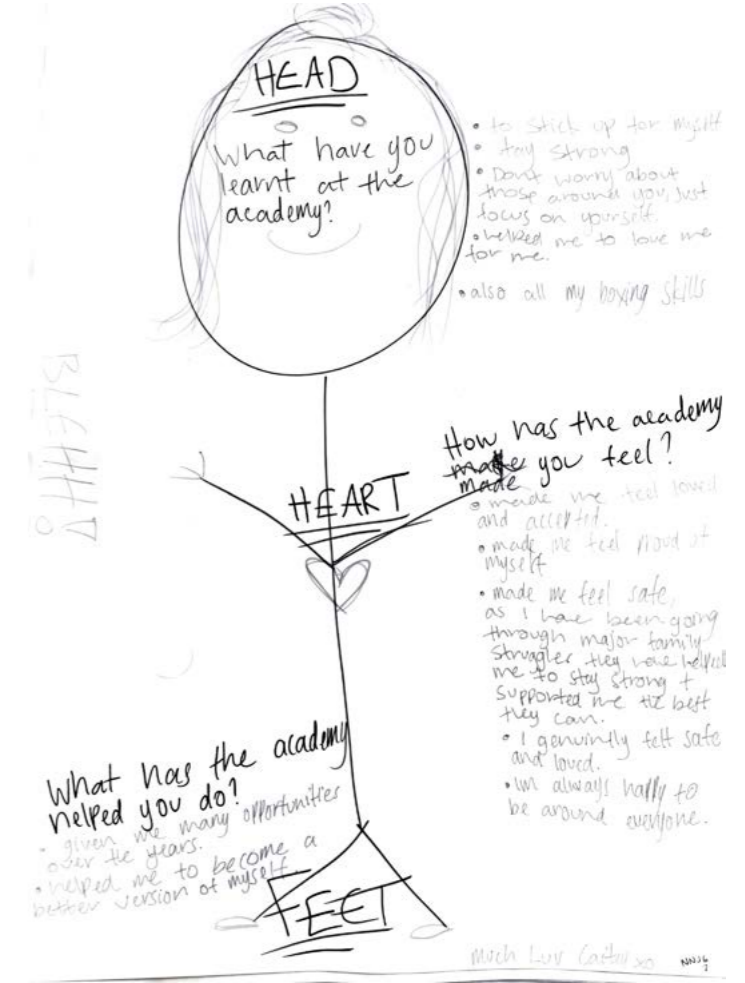 HEAD
What have you
learnt at the
academy?
• to stick up for myself
• tay strong
• Dont worry about
those around you, just
focus on yourself.
• helped me to love me
for me.
• also all my boxing skills
BLEHH
HEART
How has the academy
made you feel?
• made me feel loved
and accepted.
• made me feel proud of
myself
• made me feel safe,
as I have been going
through major family
struggles they have helped
me to stay strong +
supported me the best
they can.
• I genuinly felt safe
and loved.
• im always happy to
be around everyone.
What has the academy
helped you do?
• given me many opportunities
over the years.
• helped me to become a
better version of myself.
FEET
Much Luv xo